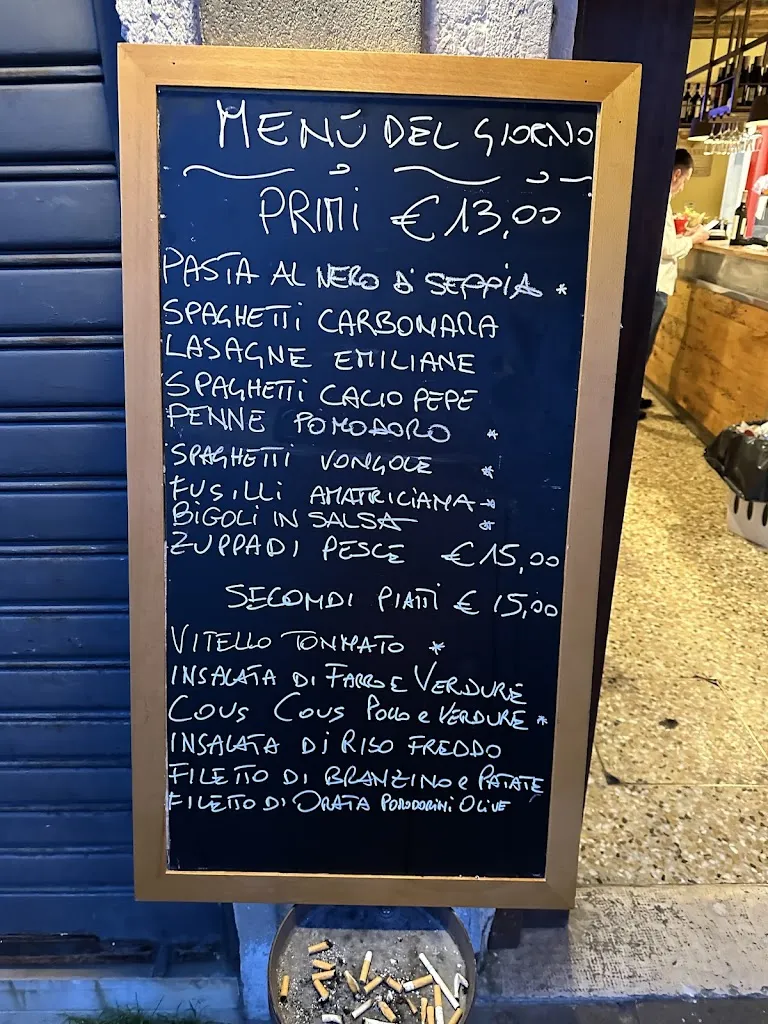 MENÙ DEL GIORNO
PRIMI €13,00
PASTA AL NERO DI SEPPIA *
SPAGHETTI CARBONARA
LASAGNE EMILIANE
SPAGHETTI CACIO PEPE
PENNE POMODORO *
SPAGHETTI VONGOLE *
FUSILLI AMATRICIANA *
BIGOLI IN SALSA *
ZUPPA DI PESCE €15,00
SECONDI PIATTI €15,00
VITELLO TONNATO *
INSALATA DI FARRO E VERDURE
COUS COUS POLLO E VERDURE *
INSALATA DI RISO FREDDO
FILETTO DI BRANZINO E PATATE
FILETTO DI ORATA POMODORINI OLIVE